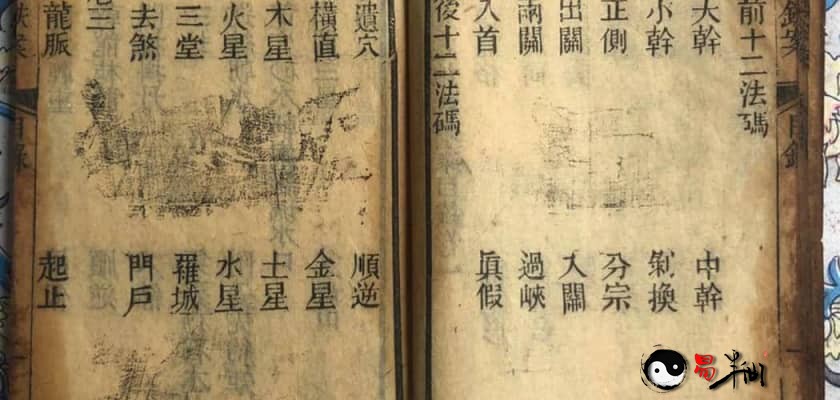 鐵案 目錄 一
前十二法碼
大幹 中幹
小幹 剝換
正側 分宗
出關 入關
兩關 過峽
入首 眞假
後十二法碼
遺穴 順逆
橫直 金星
木星 土星
火星 水星
三堂 羅城
去煞 門戶
三
龍脈 起止
鐵案 目錄
易半仙